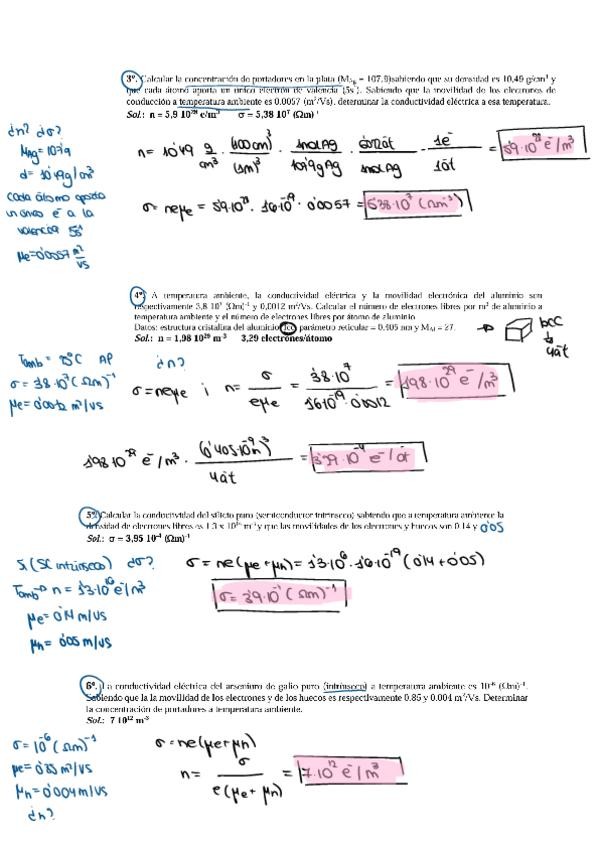 3º. Calcular la concentración de portadores en la plata (MAg = 107,9)sabiendo que su densidad es 10,49 g/cm³ y
que cada átomo aporta un único electrón de valencia (5s¹). Sabiendo que la movilidad de los electrones de
conducción a temperatura ambiente es 0.0057 (m²/Vs). determinar la conductividad eléctrica a esa temperatura.
Sol.: n = 5,9 10²⁸ e/m³ σ = 5,38 10⁷ (Ωm)⁻¹
¿n? ¿σ?
d= 10'49g/cm³
cada átomo aporta
valencia 5s¹
μe=0'0057 m²/Vs
n= 10'49 g/cm³ · (100cm)³/(1m)³ · 1molAg/107'9gAg · 1e⁻/1át
σ= neμe = 5'9·10²⁸ · 1'6·10⁻¹⁹ · 0'0057 =
4º. A temperatura ambiente, la conductividad eléctrica y la movilidad electrónica del aluminio son
respectivamente 3,8 10⁷ (Ωm)⁻¹ y 0,0012 m²/Vs. Calcular el número de electrones libres por m³ de aluminio a
temperatura ambiente y el número de electrones libres por átomo de aluminio
Datos: estructura cristalina del aluminio fcc parámetro reticular = 0.405 nm y MAl = 27.
Sol.: n = 1,98 10²⁹ m⁻³ 3,29 electrones/átomo
bcc
4át
σ= 3'8·10⁷(Ωm)⁻¹
μe= 0'0012 m²/Vs
¿n?
σ=neμe ; n= σ/eμe = 3'8·10⁷/1'6·10⁻¹⁹·0'0012 = 1'98·10²⁹ e⁻/m³
1'98·10²⁹ e⁻/m³ · (0'405·10⁻⁹)³/4át =
5º. Calcular la conductividad del silicio puro (semiconductor intrínseco) sabiendo que a temperatura ambiente la
densidad de electrones libres es 1.3 x 10¹⁶ m⁻³ y que las movilidades de los electrones y huecos son 0.14 y 0'05
Sol.: σ = 3,95 10⁻⁴ (Ωm)⁻¹
Si (SC intrínseco) ¿σ?
Tamb→ n = 1'3·10¹⁶ e⁻/m³
μe= 0'14 m/Vs
μn= 0'05 m/Vs
σ= ne(μe+μn)= 1'3·10⁶ · 1'6·10⁻¹⁹ (0'14 + 0'05)
6º. La conductividad eléctrica del arseniuro de galio puro (intrínseco) a temperatura ambiente es 10⁻⁶ (Ωm)⁻¹.
Sabiendo que la la movilidad de los electrones y de los huecos es respectivamente 0.85 y 0.004 m²/Vs. Determinar
la concentración de portadores a temperatura ambiente.
Sol.: 7 10¹² m⁻³
σ= 10⁻⁶ (Ωm)⁻¹
μe= 0'85 m²/Vs
μn= 0'004 m/Vs
¿n?
σ=ne(μe+μn)
n= σ/e(μe+μn) = 7·10¹² e⁻/m³